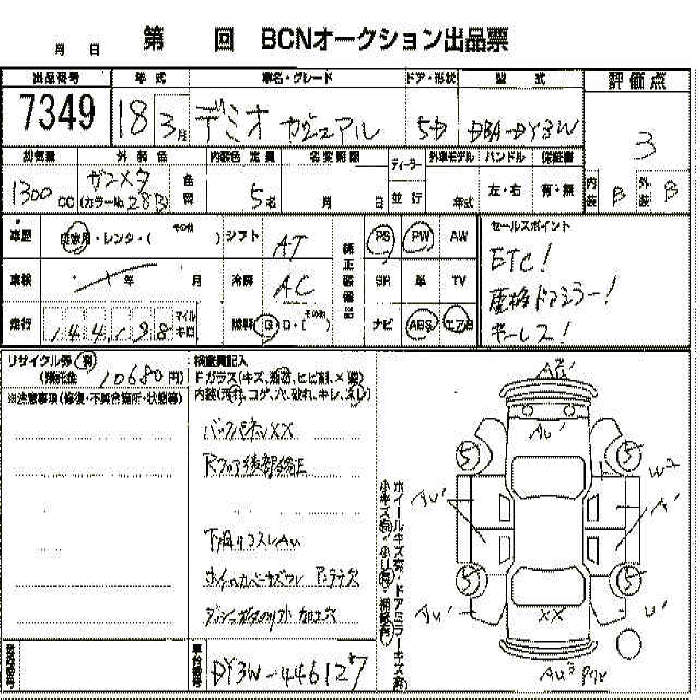 月 日 第 回 BCNオークション出品票
出品番号 年式 車名・グレード ドア・形状 型式 評価点
7349 18 3月 デミオ カジュアル 5D DBA-DY3W 3
排気量 外装色 内装色 定員 名変期限 ディーラー 外車モデル ハンドル 保証書
1300CC ガンメタ (カラーNo.28B) 5名 月 日 並行 年式 左・右 有・無 内装 B 外装 B
車歴 自家用・レンタ・(その他) シフト AT 純正装備品 PS PW AW セールスポイント
車検 年 月 冷房 AC SR 革 TV ETC!
走行 144,198 マイル キロ 燃料 G・D・(その他) ナビ ABS エアB 電格ドアミラー!
キーレス!
リサイクル券 預託金 10680円 検査員記入
Fガラス(キズ、飛石、ヒビ割、×有)
※注意事項(修復・不具合箇所・状態等) 内装(汚れ、コゲ、穴、破れ、キレ、スレ)
バックパネルXX
Rフロア後部修正
下廻りコスレAU
ホイルカバーキズワレ
加工穴
A2 A1
AU1
5 5
W2
AU1 A1
5 5
AU1 XX U1
AU3
車台番号 DY3W-446127